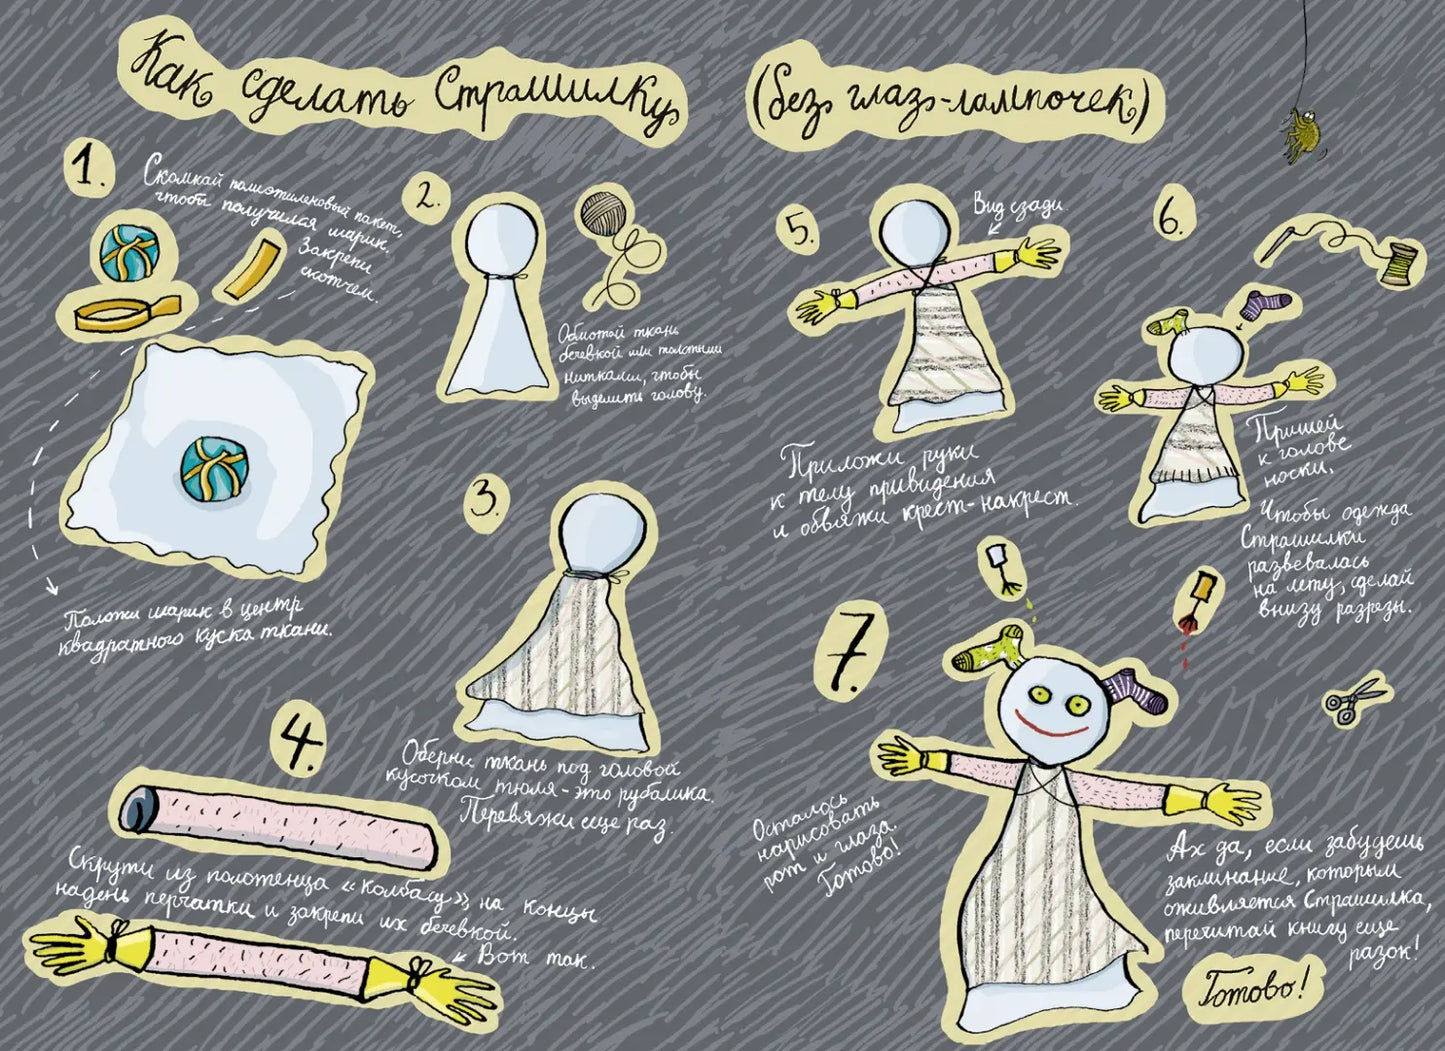 Как сделать Страшилку
(без глаз-лампочек)
1.
Скомкай полиэтиленовый пакет,
чтобы получился шарик.
Закрепи
скотчем.
Положи шарик в центр
квадратного куска ткани.
2.
Обмотай ткань
бечевкой или толстыми
нитками, чтобы
выделить голову.
3.
Оберни ткань под головой
кусочком тюля-это рубашка.
Перевяжи еще раз.
4.
Скрути из полотенца «колбасу», на концы
надень перчатки и закрепи их бечевкой.
Вот так.
5.
Вид сзади.
Приложи руки
к телу привидения
и обвяжи крест-накрест.
6.
Пришей
к голове
носки.
Чтобы одежда
Страшилки
развевалась
на лету, сделай
внизу разрезы.
7.
Осталось
нарисовать
рот и глаза.
Готово!
Ах да, если забудешь
заклинание, которым
оживляется Страшилка,
перечитай книгу еще
разок!
Готово!